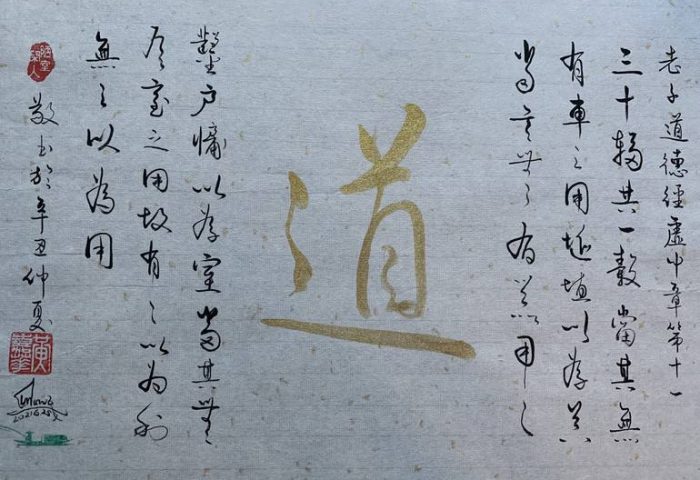 老子道德經虛中章第十一
三十輻共一轂當其無
有車之用埏埴以為器
當其無有器用之
道
鑿戶牖以為室當其無
有室之用故有之以為利
無之以為用
敬書於辛丑仲夏